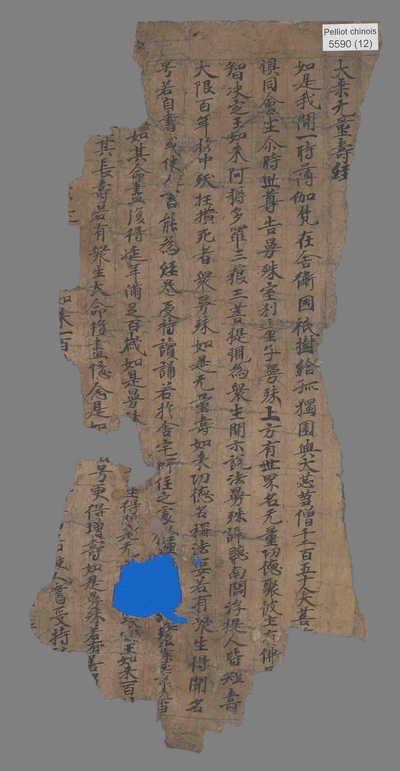 Pelliot chinois
5590 (12)
大乘无量壽經
如是我聞一時薄伽梵在舍衛國祇樹給孤獨園與大苾芻僧千二百五十人大菩
俱同會坐尒時世尊告曼殊室利童子曼殊上方有世界名无量功德聚彼土有佛
智決定王如来阿耨多羅三藐三菩提現為衆生開示說法曼殊諦聽南閻浮提人皆短壽
大限百年於中殀狂橫死者衆曼殊如是无量壽如来功德名稱法要若有衆生得聞名
号若自書或使人書能為經卷受持讀誦若於舍宅所住之處
如其命盡復得延年滿足百歲如是曼殊 生得聞是无 定王如来一百
其長壽若有衆生大命将盡憶念是如 号更得增壽如是曼殊若有善
如来一百 使人書受持